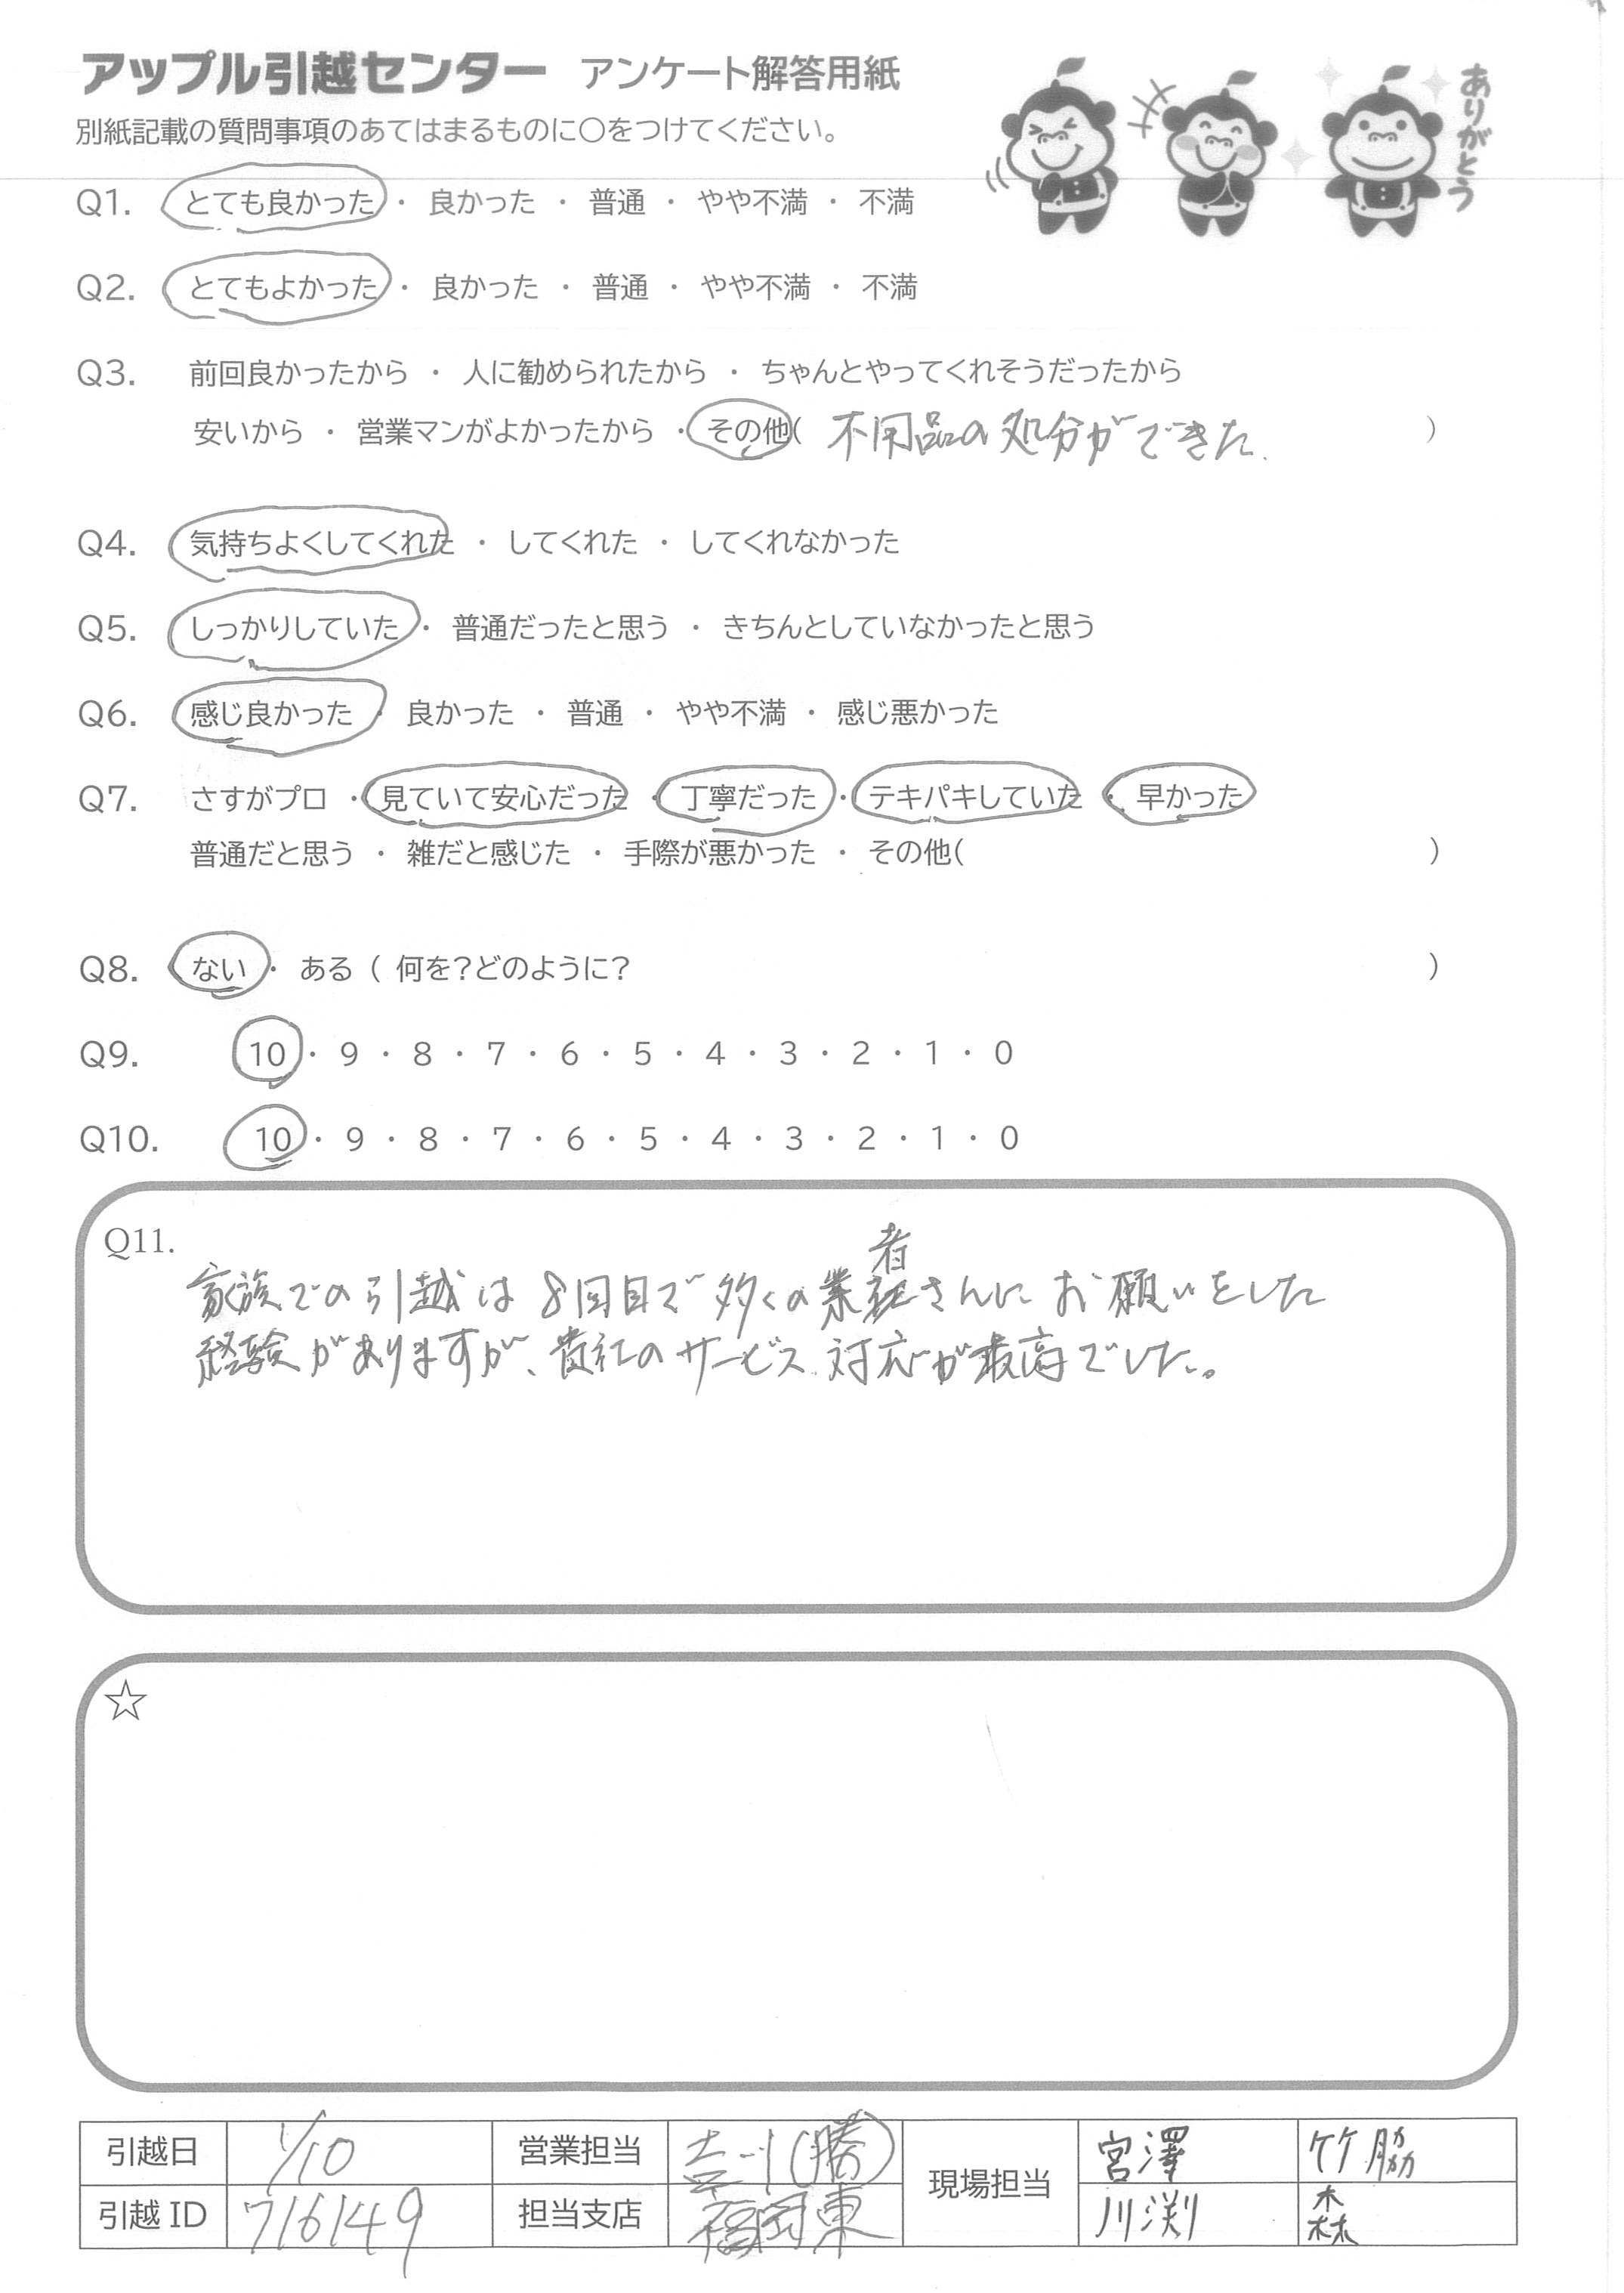 アップル引越センター アンケート解答用紙
ありがとう
別紙記載の質問事項のあてはまるものに○をつけてください。
Q1. とても良かった ・ 良かった ・ 普通 ・ やや不満 ・ 不満
Q2. とてもよかった ・ 良かった ・ 普通 ・ やや不満 ・ 不満
Q3. 前回良かったから ・ 人に勧められたから ・ ちゃんとやってくれそうだったから
安いから ・ 営業マンがよかったから ・ その他( 不用品の処分ができた. )
Q4. 気持ちよくしてくれた ・ してくれた ・ してくれなかった
Q5. しっかりしていた ・ 普通だったと思う ・ きちんとしていなかったと思う
Q6. 感じ良かった ・ 良かった ・ 普通 ・ やや不満 ・ 感じ悪かった
Q7. さすがプロ ・ 見ていて安心だった ・ 丁寧だった ・ テキパキしていた ・ 早かった
普通だと思う ・ 雑だと感じた ・ 手際が悪かった ・ その他( )
Q8. ない ・ ある ( 何を?どのように? )
Q9. 10 ・ 9 ・ 8 ・ 7 ・ 6 ・ 5 ・ 4 ・ 3 ・ 2 ・ 1 ・ 0
Q10. 10 ・ 9 ・ 8 ・ 7 ・ 6 ・ 5 ・ 4 ・ 3 ・ 2 ・ 1 ・ 0
Q11.
家族での引越は8回目で多くの業者さんにお願いをした
経験がありますが、貴社のサービス対応が最高でした。
☆
引越日 1/10 営業担当 (勝) 現場担当 宮澤 竹脇
引越ID 716149 担当支店 福岡東 川渕 森